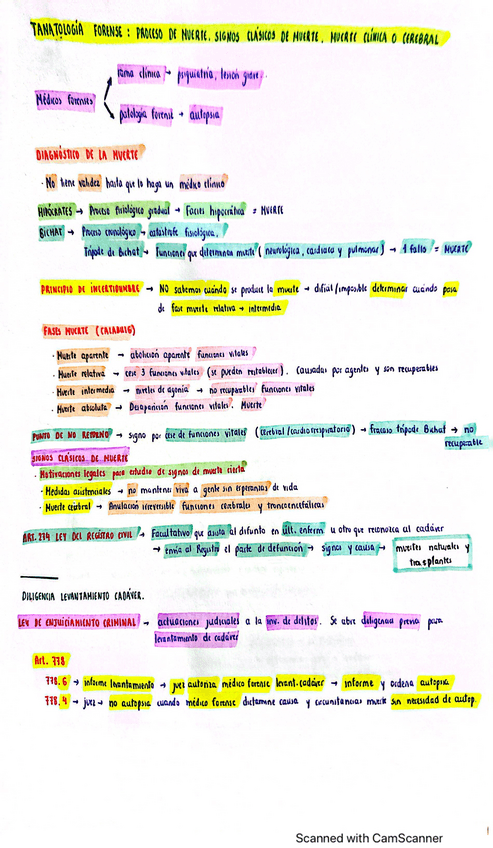 TANATOLOGÍA FORENSE: PROCESO DE MUERTE. SIGNOS CLÁSICOS DE MUERTE. MUERTE CLÍNICA O CEREBRAL
rama clínica → psiquiatría, lesión grave.
Médicos forenses
patología forense → autopsia
DIAGNÓSTICO DE LA MUERTE
· No tiene validez hasta que lo haga un médico clínico
HIPÓCRATES → Proceso fisiológico gradual → Facies hipocrática = MUERTE
BICHAT → Proceso cronológico → catástrofe fisiológica.
Trípode de Bichat → Funciones que determinan muerte (neurológica, cardiaca y pulmonar) → 1 fallo = MUERTE
PRINCIPIO DE INCERTIDUMBRE → NO sabemos cuándo se produce la muerte → difícil/imposible determinar cuándo pasa
de fase muerte relativa → intermedia
FASES MUERTE (CALABUIG)
· Muerte aparente → abolición aparente funciones vitales
· Muerte relativa → cese 3 funciones vitales (se pueden restablecer). Causadas por agentes y son recuperables
· Muerte intermedia → niveles de agonía → no recuperables funciones vitales
· Muerte absoluta → Desaparición funciones vitales. Muerte
PUNTO DE NO RETORNO → signo por cese de funciones vitales (cerebral/cardiorespiratorio) → fracaso trípode Bichat → no
recuperable
SIGNOS CLÁSICOS DE MUERTE
· Motivaciones legales para estudio de signos de muerte cierta
· Medidas asistenciales → no mantener viva a gente sin esperanzas de vida
· Muerte cerebral → Anulación irreversible funciones cerebrales y troncoencefálicas
ART. 274 LEY DEL REGISTRO CIVIL → Facultativo que asista al difunto en últ. enferm u otro que reconozca al cadáver
→ envía al Registro el parte de defunción → signos y causa → muertes naturales y
trasplantes
DILIGENCIA LEVANTAMIENTO CADÁVER.
LEY DE ENJUICIAMIENTO CRIMINAL → actuaciones judiciales a la inv. de delitos. Se abre diligencia previa para
levantamiento de cadáver
Art. 778
778.6 → informe levantamiento → juez autoriza médico forense levant. cadáver → informe y ordena autopsia
778.4 → juez → no autopsia cuando médico forense dictamine causa y circunstancias muerte sin necesidad de autop.
Scanned with CamScanner